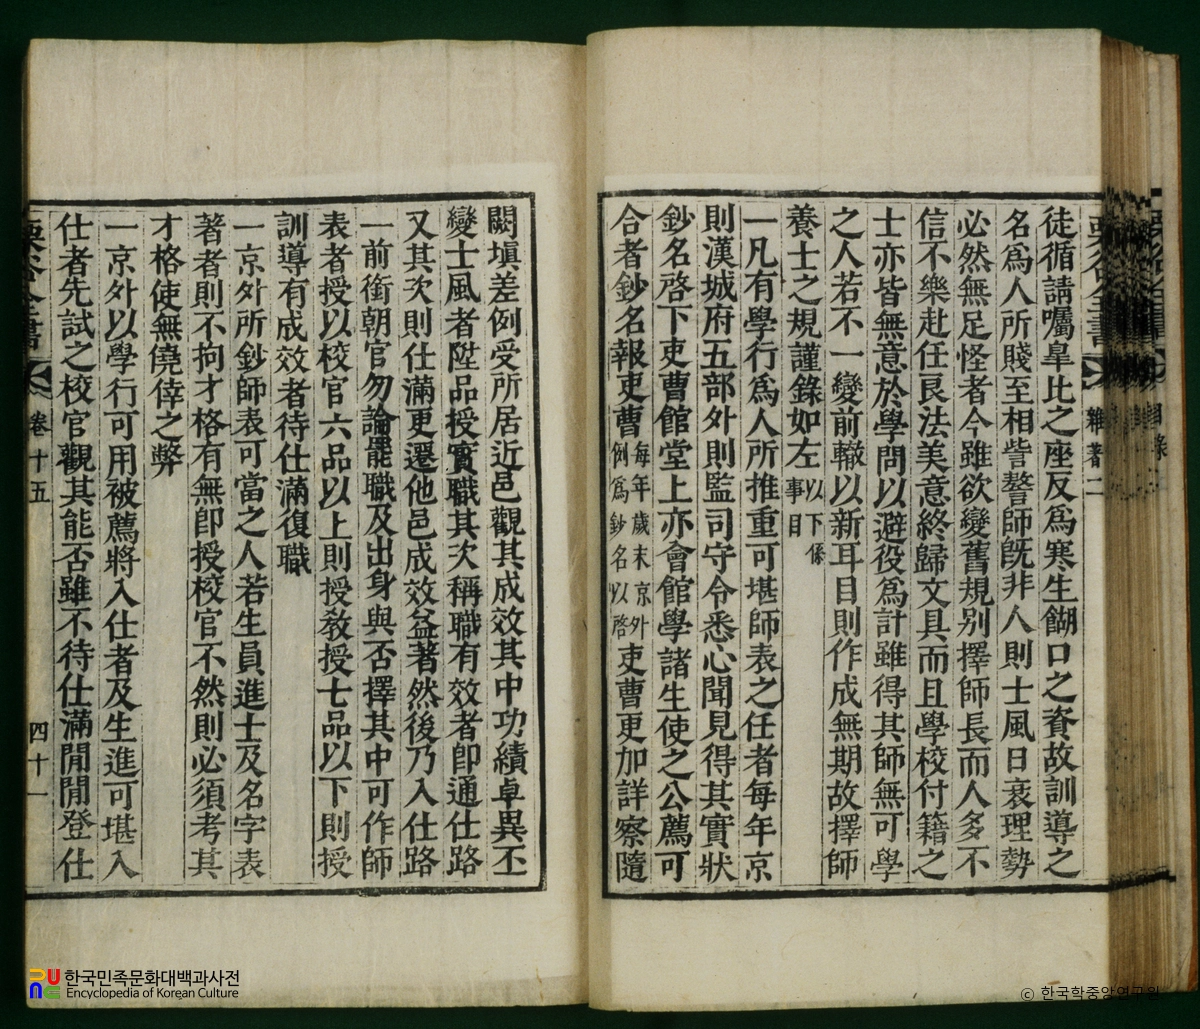 徒循請囑皐比之座反爲寒生餬口之資故訓導之
名爲人所賤至相訾謷師旣非人則士風日衰理勢
必然無足怪者今雖欲變舊規别擇師長而人多不
信不樂赴任良法美意終歸文具而且學校付籍之
士亦皆無意於學問以避役爲計雖得其師無可學
之人若不一變前轍以新耳目則作成無期故擇師
養士之規謹錄如左以下係事目
一凡有學行爲人所推重可堪師表之任者每年京
則漢城府五部外則監司守令悉心聞見得其實狀
鈔名啓下吏曹館堂上亦會館學諸生使之公薦可
合者鈔名報吏曹每年歲末京外例爲鈔名以啓吏曹更加詳察隨
闕塡差例受所居近邑觀其成效其中功績卓異丕
變士風者陞品授實職其次稱職有效者卽通仕路
又其次則仕滿更遷他邑成效益著然後乃入仕路
一前銜朝官勿論罷職及出身與否擇其中可作師
表者授以校官六品以上則授敎授七品以下則授
訓導有成效者待仕滿復職
一京外所鈔師表可當之人若生員進士及名字表
著者則不拘才格有無卽授校官不然則必須考其
才格使無僥倖之弊
一京外以學行可用被薦將入仕者及生進可堪入
仕者先試之校官觀其能否雖不待仕滿閒閒登仕
栗谷全書 卷十五 四十一
栗谷全書 雜著二
目錄
한국민족문화대백과사전
Encyclopedia of Korean Culture
© 한국학중앙연구원